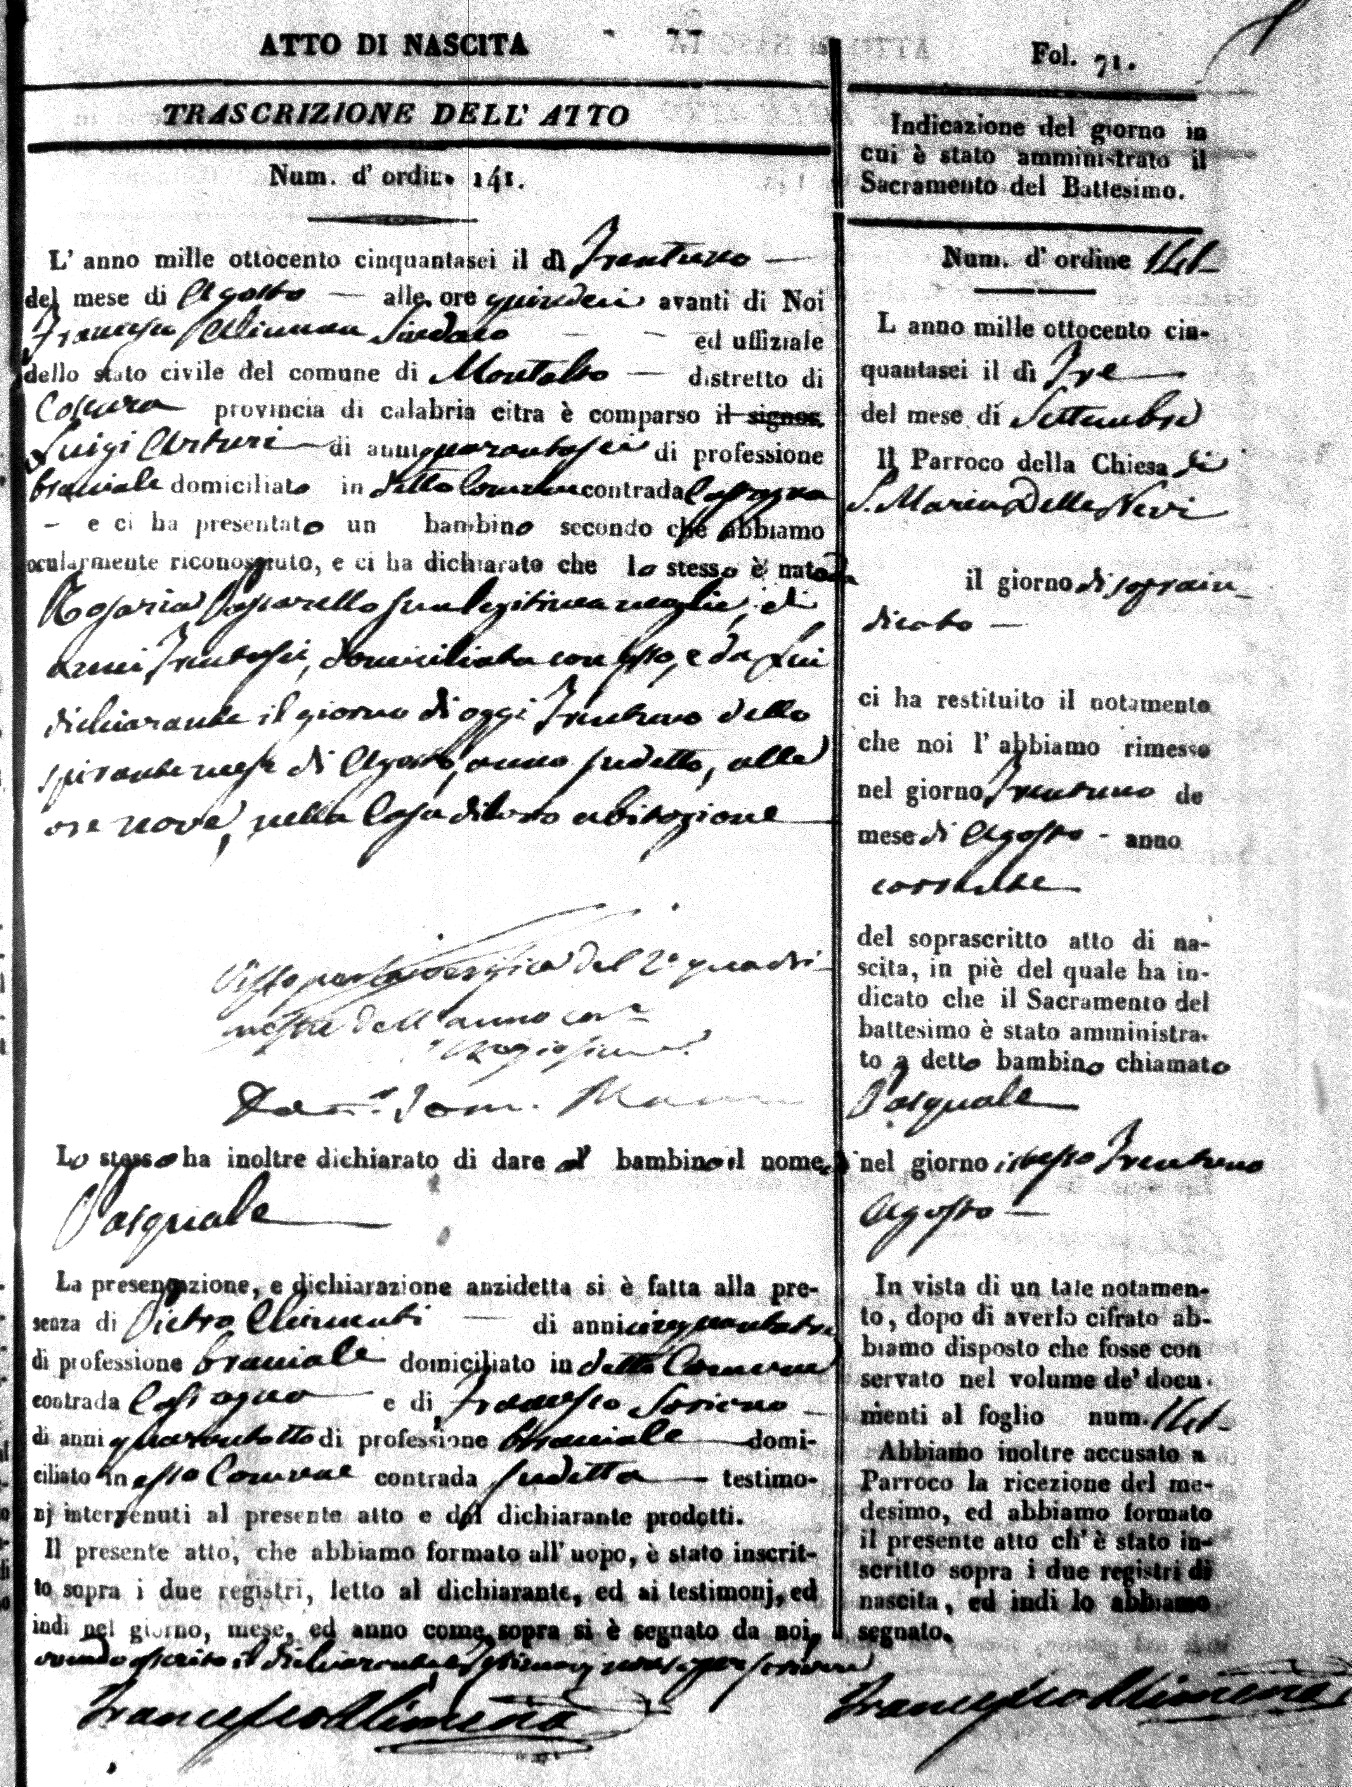 ATTO DI NASCITA
TRASCRIZIONE DELL' ATTO
Num. d' ordine 141.
L' anno mille ottocento cinquantasei il dì Trentuno
del mese di Agosto alle ore quindeci avanti di Noi
Francesco Alimena Sindaco ed uffiziale
dello stato civile del comune di Montalto distretto di
Cosenza provincia di calabria citra è comparso il signor
Luigi Arturi di anni quarantasei di professione
braciale domiciliato in detto Comune contrada
e ci ha presentato un bambino secondo che abbiamo
ocularmente riconosciuto, e ci ha dichiarato che lo stesso è nato da
Rosaria sua legitima moglie, di
anni Trentasei, domiciliata con esso, e da Lui
dichiarante il giorno di oggi Trentuno dello
spirante mese di Agosto, anno sudetto, alle
ore nove, nella Casa di loro abitazione
Visto per la verifica del 2º quadri-
mestre dell'anno
Lo stesso ha inoltre dichiarato di dare al bambino il nome di
Pasquale
La presentazione, e dichiarazione anzidetta si è fatta alla pre-
senza di Pietro Chimenti di anni cinquantatre
di professione braciale domiciliato in detto Comune
contrada e di Francesco
di anni quarantotto di professione braciale domi-
ciliato in esso Comune contrada sudetta testimo-
nj intervenuti al presente atto e dal dichiarante prodotti.
Il presente atto, che abbiamo formato all' uopo, è stato inscrit-
to sopra i due registri, letto al dichiarante, ed ai testimonj, ed
indi nel giorno, mese, ed anno come sopra si è segnato da noi,
avendo asserito il dichiarante e testimonj non saper scrivere
Francesco Alimena
Fol. 71.
Indicazione del giorno in
cui è stato amministrato il
Sacramento del Battesimo.
Num. d' ordine 141
L anno mille ottocento cin-
quantasei il dì Tre
del mese di Settembre
Il Parroco della Chiesa di
S. Maria Delle Nevi
il giorno di sopra in-
dicato
ci ha restituito il notamento
che noi l' abbiamo rimesso
nel giorno Trentuno de
mese di Agosto anno
corrente
del soprascritto atto di na-
scita, in piè del quale ha in-
dicato che il Sacramento del
battesimo è stato amministra-
to a detto bambino chiamato
Pasquale
nel giorno istesso Trentuno
Agosto
In vista di un tale notamen-
to, dopo di averlo cifrato ab-
biamo disposto che fosse con
servato nel volume de' docu-
menti al foglio num. 141
Abbiamo inoltre accusato a
Parroco la ricezione del me-
desimo, ed abbiamo formato
il presente atto ch' è stato in-
scritto sopra i due registri di
nascita, ed indi lo abbiamo
segnato.
Francesco Alimena